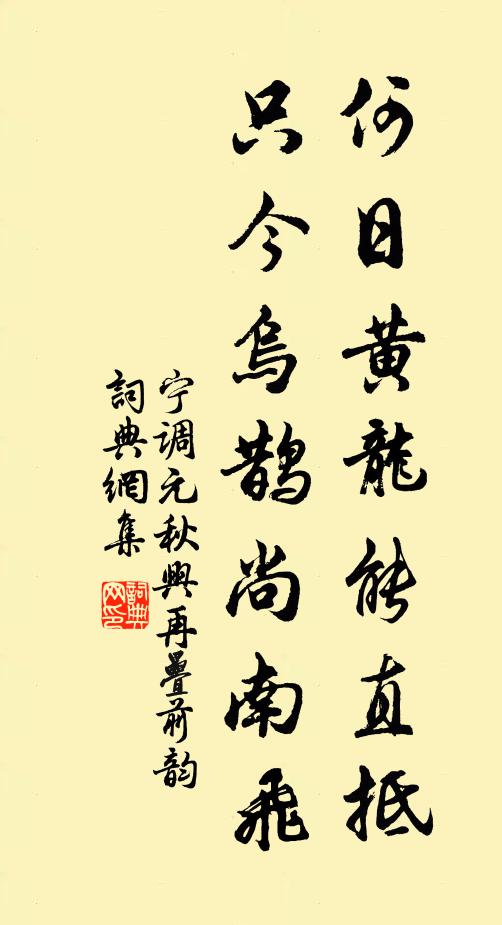 何日黃龍能直抵
只今烏鵲尚南飛
宁調元秋興再疊前韵
詞典網集
詞典网印